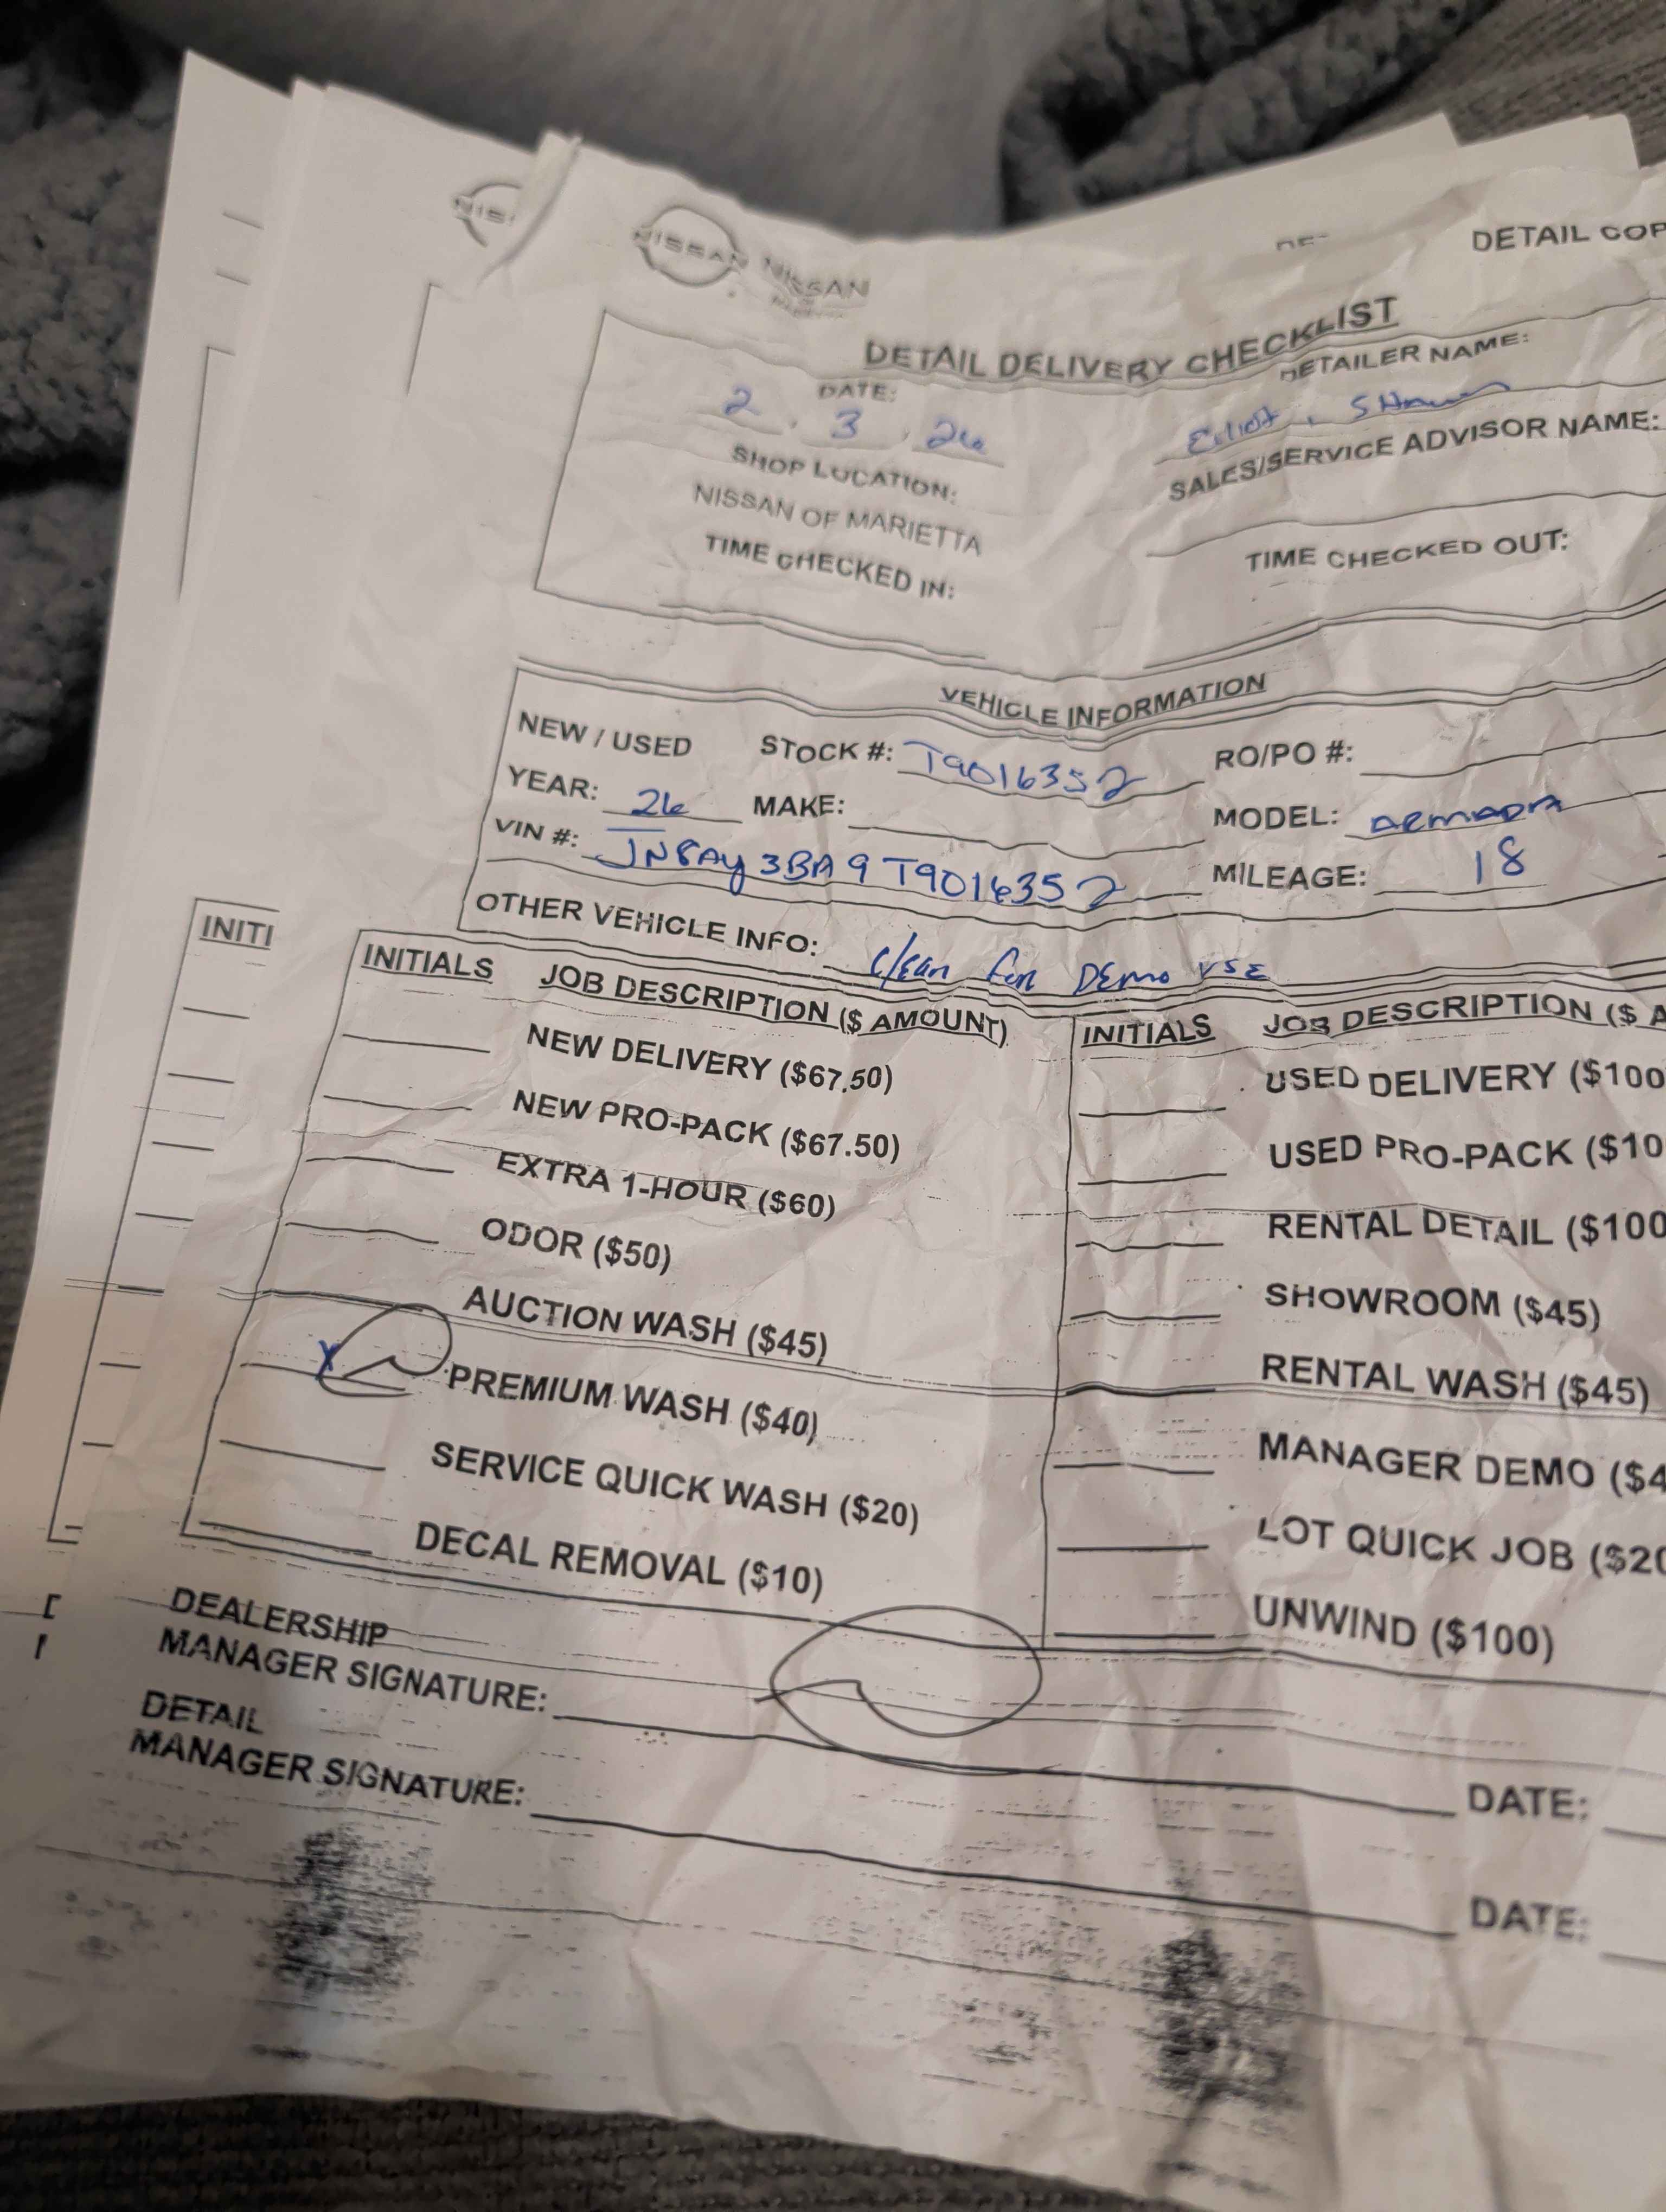 NIS
NISSAN NISSAN
DETAIL COP
DETAIL DELIVERY CHECKLIST
DATE:
2 . 3 . 26
DETAILER NAME:
Elliot
SHOP LOCATION:
NISSAN OF MARIETTA
SALES/SERVICE ADVISOR NAME:
TIME CHECKED IN:
TIME CHECKED OUT:
VEHICLE INFORMATION
NEW / USED STOCK #: T9016352 RO/PO #:
YEAR: 26 MAKE: MODEL: ARMADA
VIN #: JN8AY3BA9T9016352 MILEAGE: 18
OTHER VEHICLE INFO: Clean for DEMO USE
INITI
INITIALS JOB DESCRIPTION ($ AMOUNT) INITIALS JOB DESCRIPTION ($ A
NEW DELIVERY ($67.50) USED DELIVERY ($100
NEW PRO-PACK ($67.50) USED PRO-PACK ($10
EXTRA 1-HOUR ($60) RENTAL DETAIL ($100
ODOR ($50) SHOWROOM ($45)
AUCTION WASH ($45) RENTAL WASH ($45)
X PREMIUM WASH ($40) MANAGER DEMO ($4
SERVICE QUICK WASH ($20) LOT QUICK JOB ($20
DECAL REMOVAL ($10) UNWIND ($100)
DEALERSHIP
MANAGER SIGNATURE: DATE:
DETAIL
MANAGER SIGNATURE: DATE: